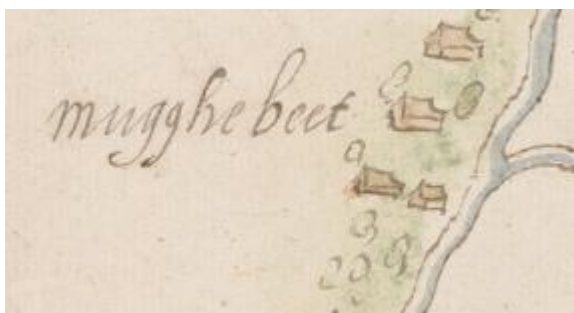 mugghe beet